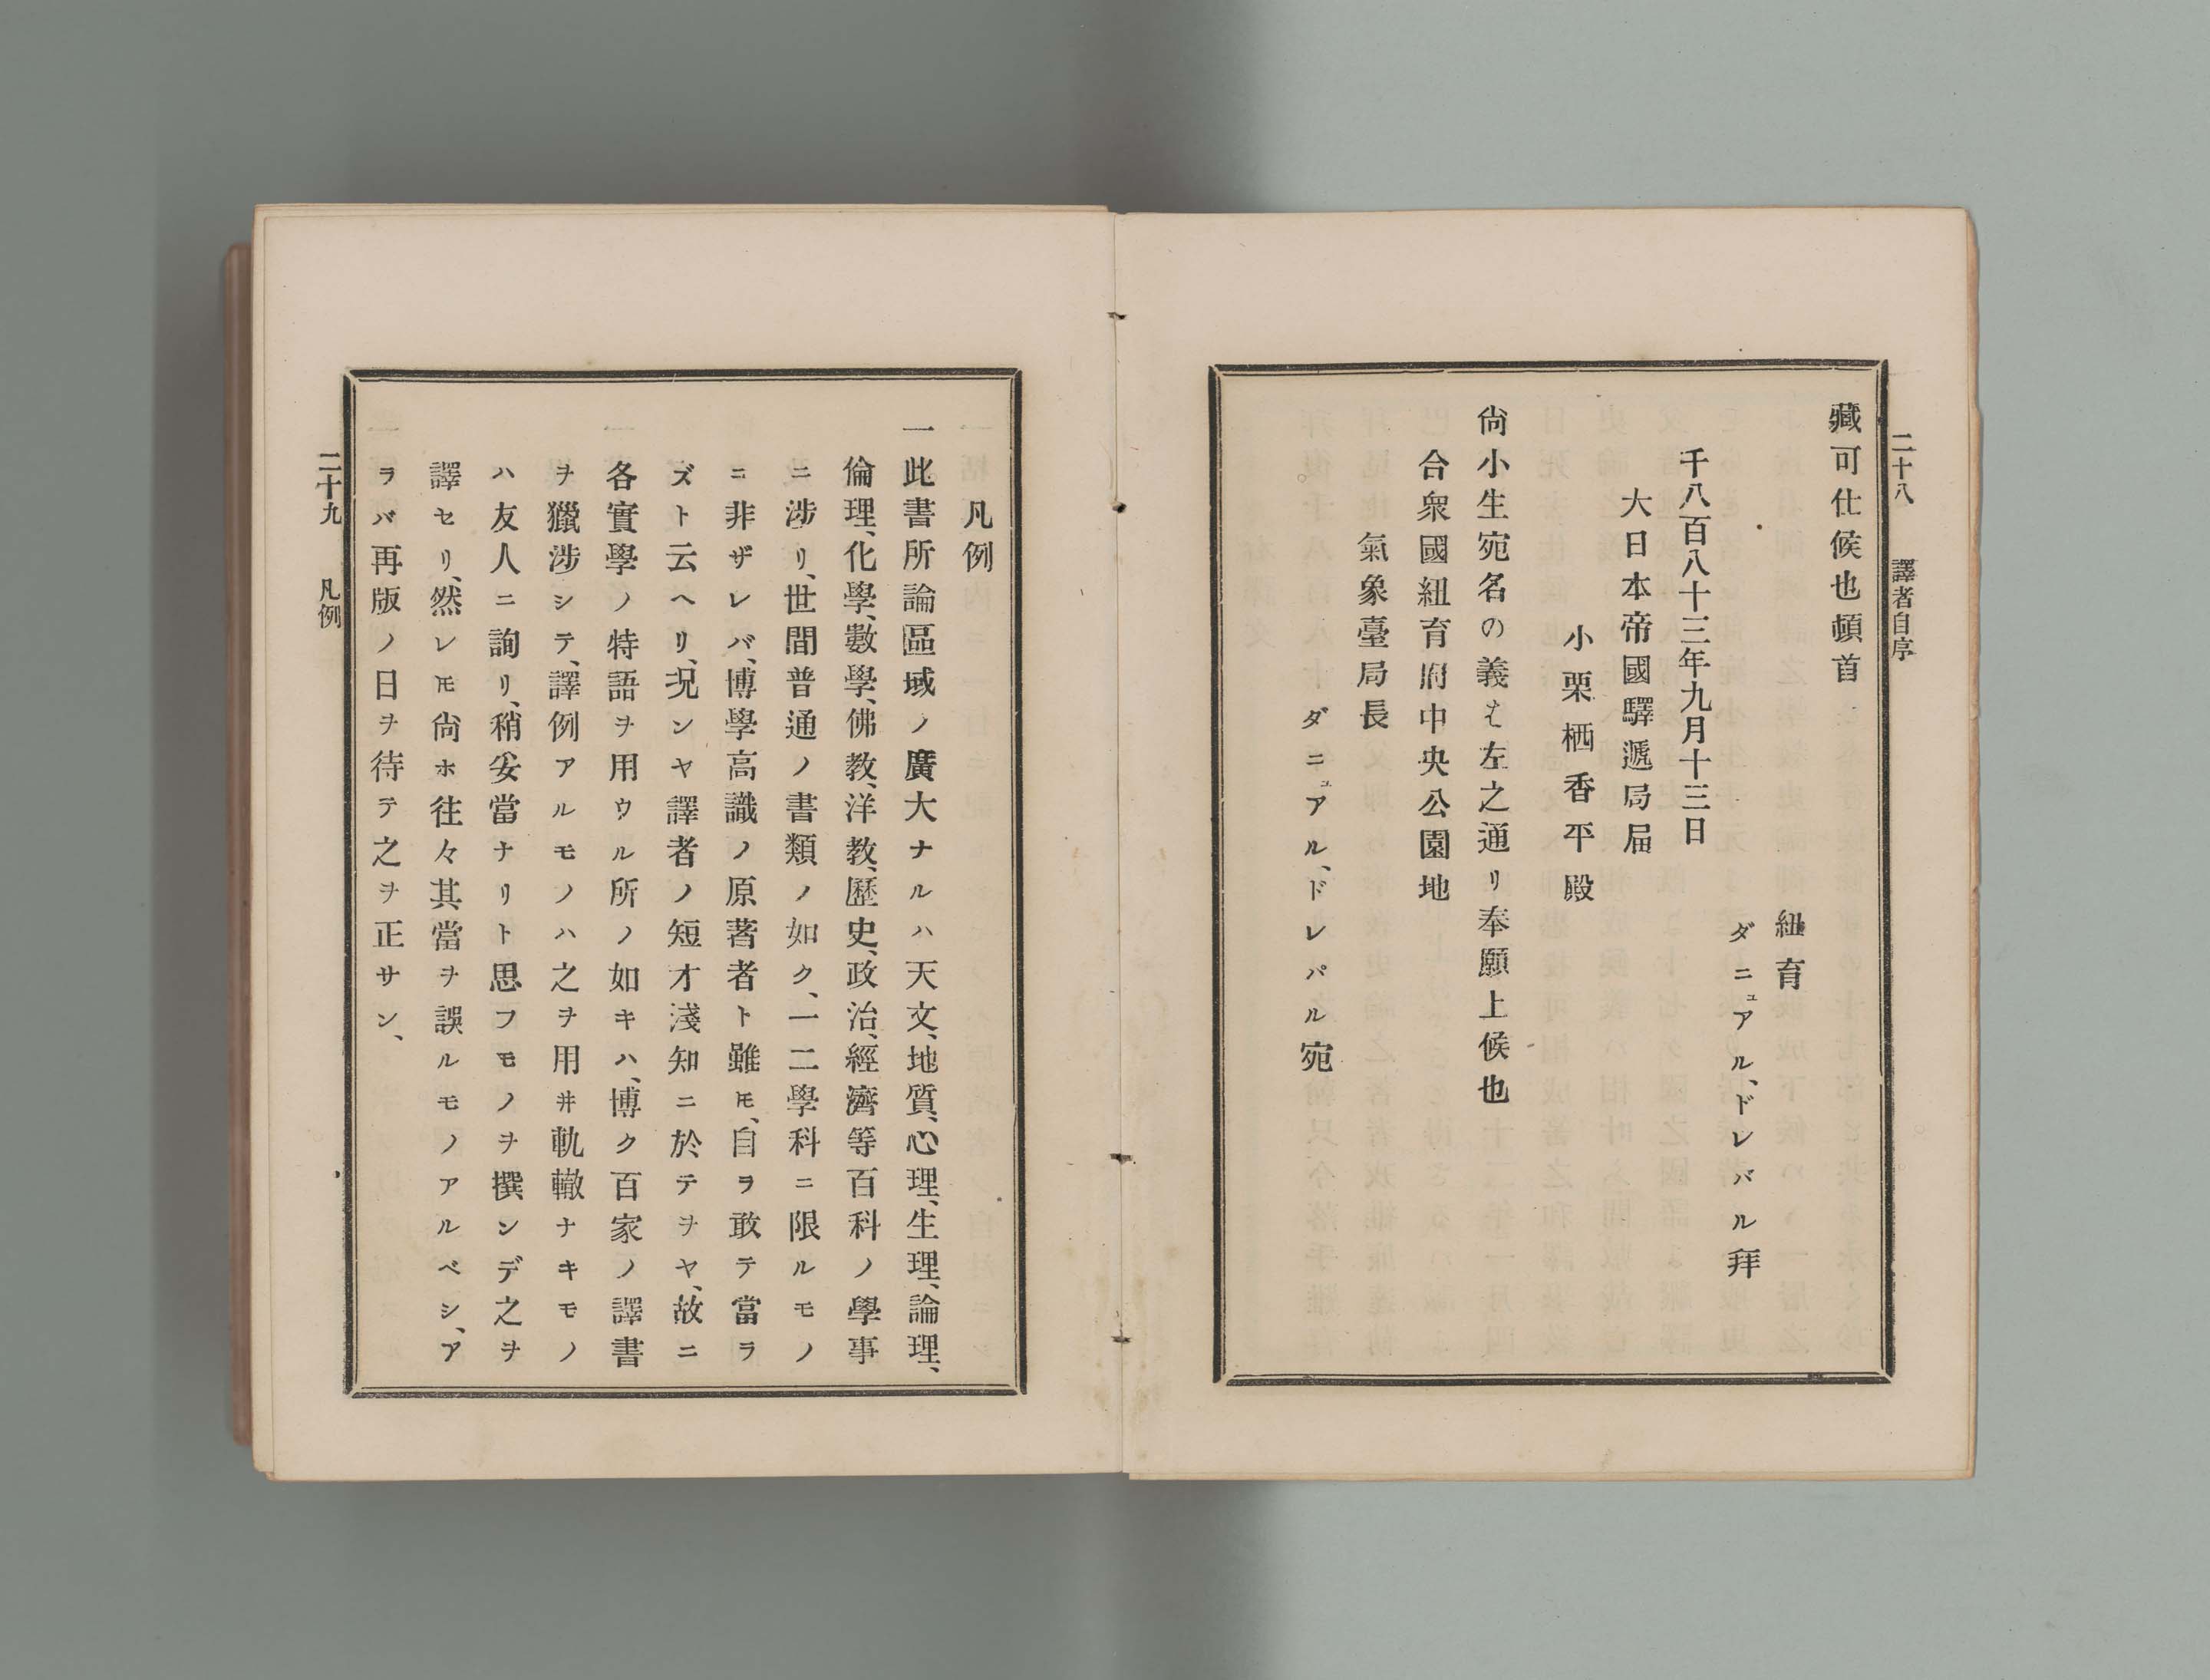 二十八　譯者自序
藏可仕候也頓首
紐育
ダニュアル、ドレパル拜
千八百八十三年九月十三日
大日本帝國驛遞局届
小栗栖香平殿
尙小生宛名の義は左之通リ奉願上候也
合衆國紐育府中央公園地
氣象臺局長
ダニュアル、ドレパル宛
凡例
一此書所論區域ノ廣大ナルハ天文、地質、心理、生理、論理、
倫理、化學、數學、佛教、洋教、歷史、政治、經濟等百科ノ學事
ニ涉リ、世間普通ノ書類ノ如ク、一二學科ニ限ルモノ
ニ非ザレバ、博學高識ノ原著者ト雖ヒ、自ラ敢テ當ラ
ズト云ヘリ、况ンヤ譯者ノ短才淺知ニ於テヲヤ、故ニ
各實學ノ特語ヲ用ウル所ノ如キハ、博ク百家ノ譯書
ヲ獵涉シテ、譯例アルモノハ之ヲ用井軌轍ナキモノ
ハ友人ニ詢リ、稍妥當ナリト思フモノヲ撰ンデ之ヲ
譯セリ、然レヒ尙ホ往々其當ヲ誤ルモノアルベシ、ア
ラバ再版ノ日ヲ待テ之ヲ正サン、
二十九　凡例